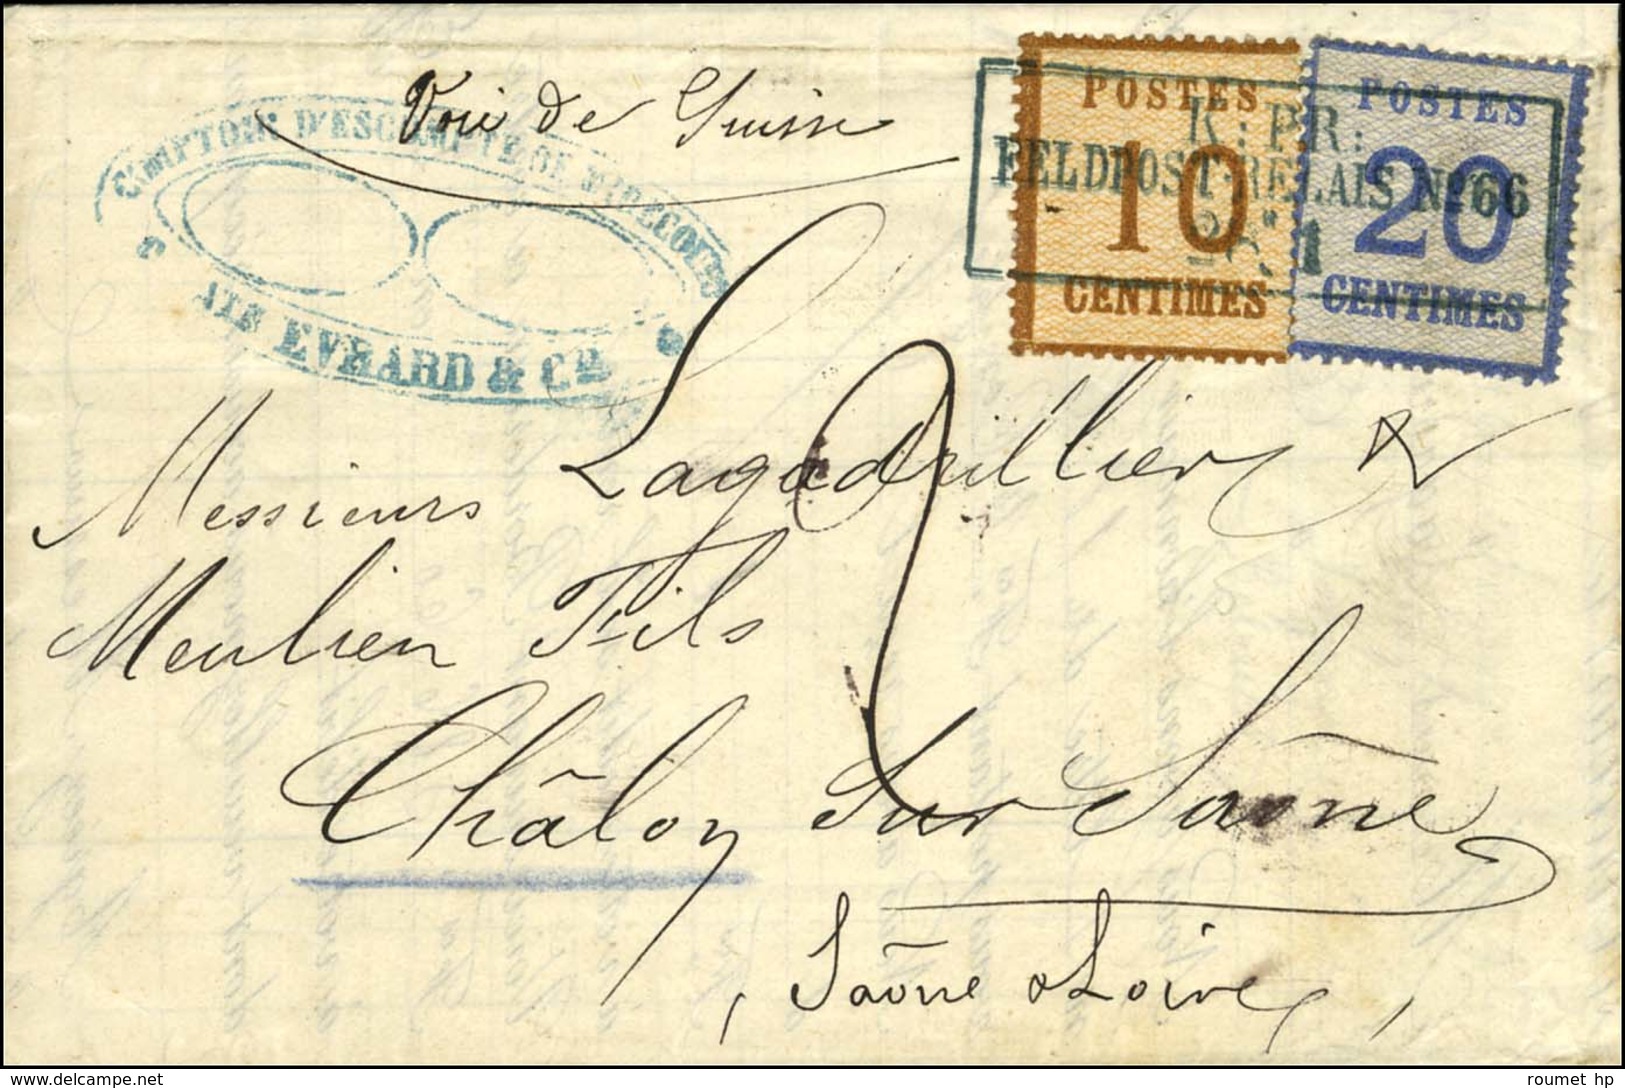 Voie de Suisse
COMPTOIR D'ESCOMPTE DE MIRECOURT
EVRARD & CIE
POSTES
10
CENTIMES
POSTES
20
CENTIMES
K: PR:
FELDPOST-RELAIS No 66
2
Messieurs Lagadrillier &
Meulien Fils
Châlon sur Saône
Saône & Loire
roumet hp